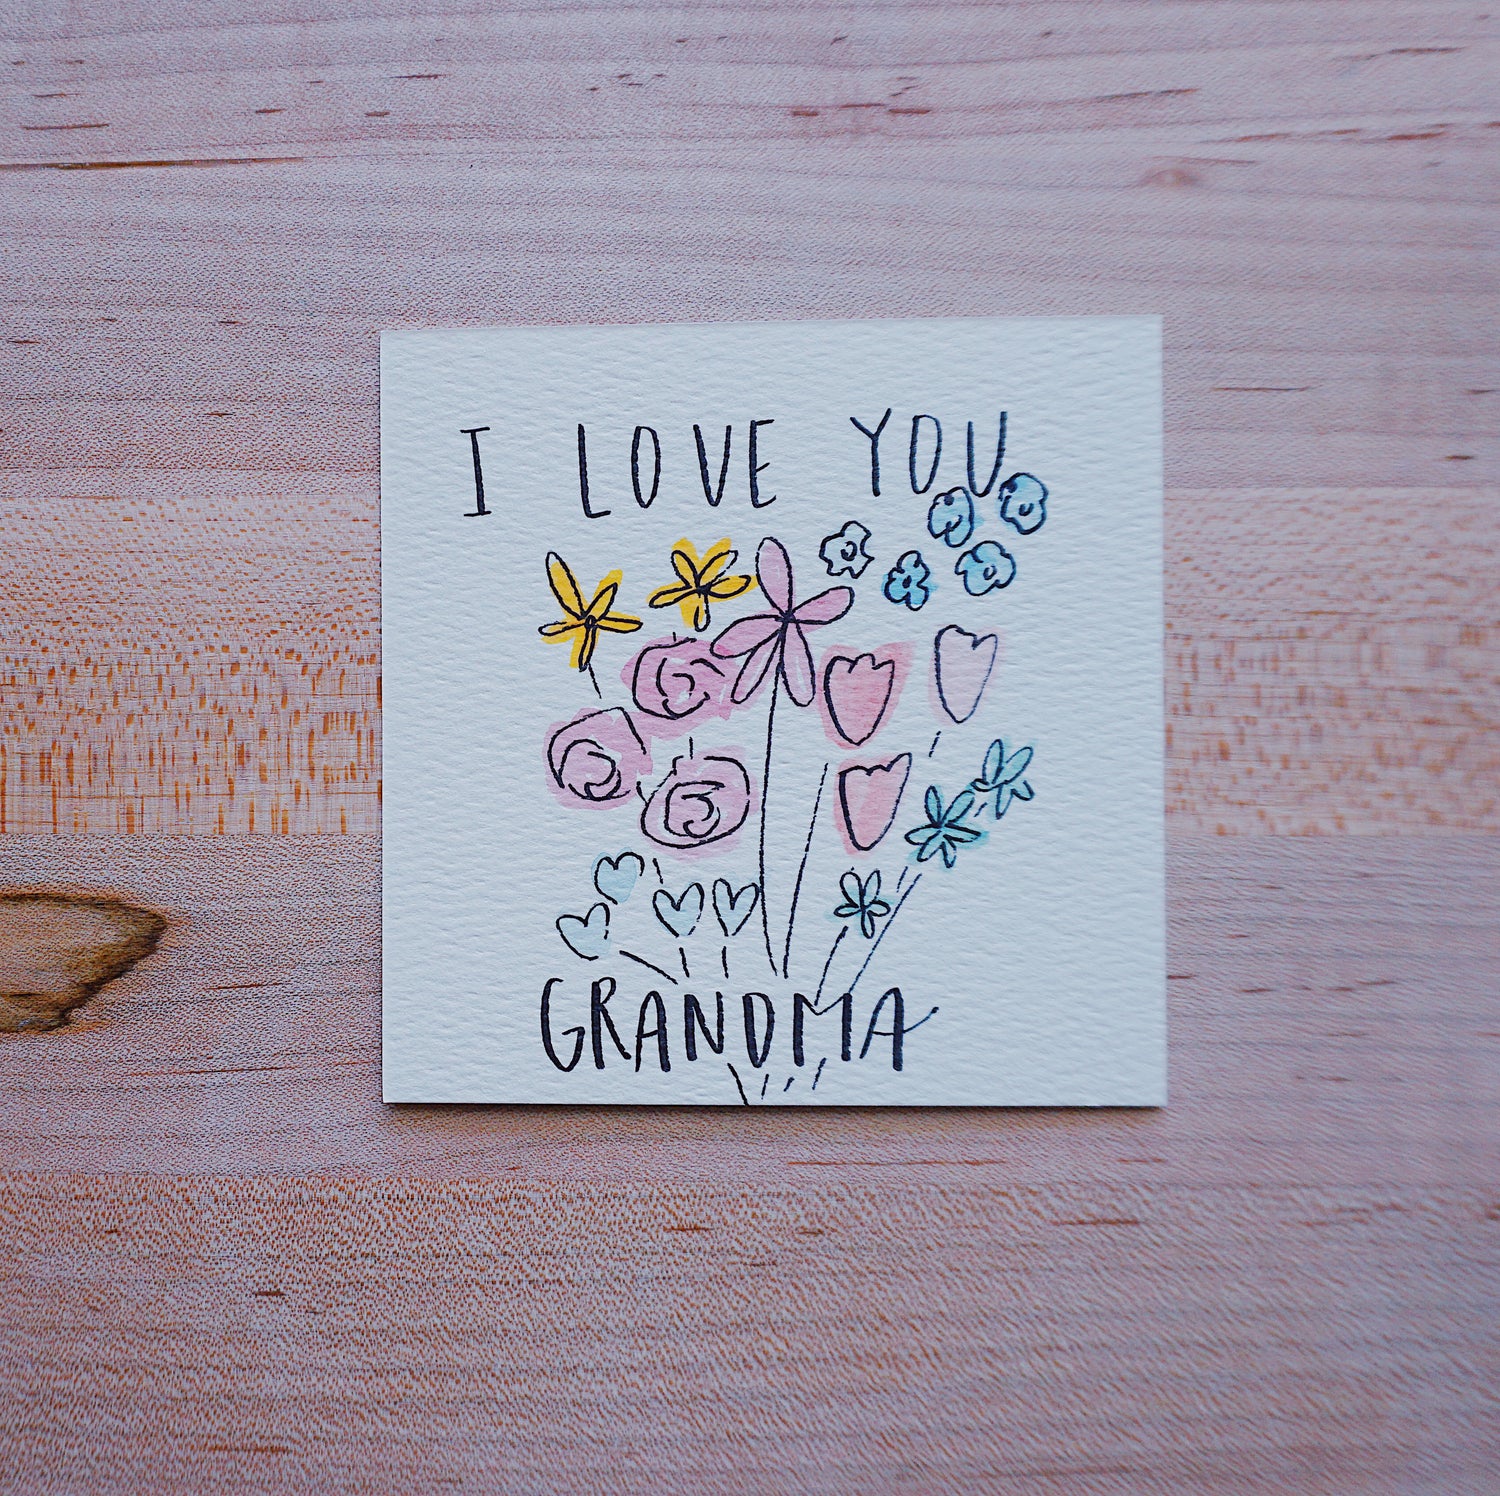 I LOVE YOU
GRANDMA